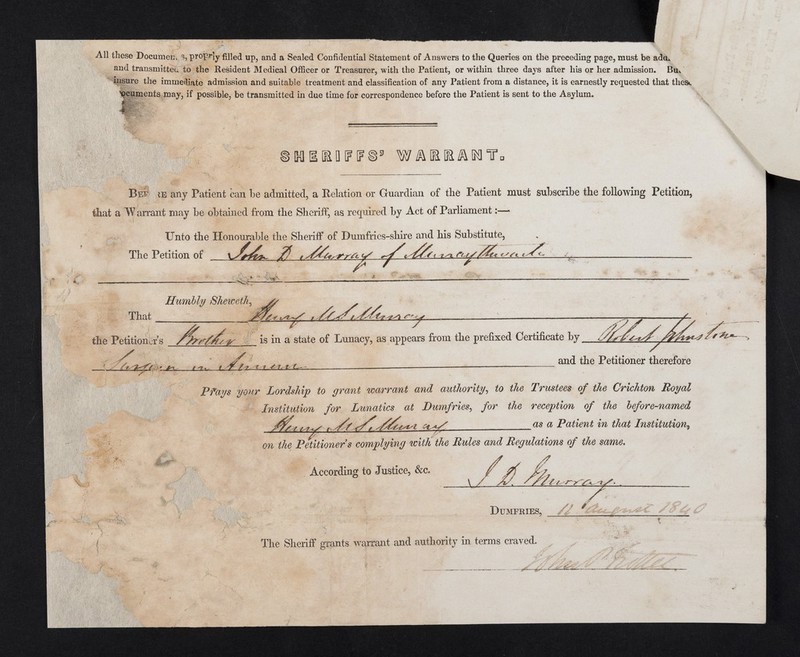 All these Documen s, proprly filled up, and a Sealed Confidential Statement of Answers to the Queries on the preceding page, must be
and transmitted to the Resident Medical Officer or Treasurer, with the Patient, or within three days after his or her admission.
insure the immediate admission and suitable treatment and classification of any Patient from a distance, it is earnestly requested that thes
ocuments may, if possible, be transmitted in due time for correspondence before the Patient is sent to the Asylum.
SHERIFFS' WARRANT.
BEF RE any Patient can be admitted, a Relation or Guardian of the Patient must subscribe the following Petition,
that a Warrant may be obtained from the Sheriff, as required by Act of Parliament:—
Unto the Honourable the Sheriff of Dumfries-shire and his Substitute,
The Petition of John D Murray of Murraythwaite
Humbly Sheweth,
That Henry M S Murray
the Petitioner's Brother is in a state of Lunacy, as appears from the prefixed Certificate by Robert Johnstone
Surgeon in Annan and the Petitioner therefore
Prays your Lordship to grant warrant and authority, to the Trustees of the Crichton Royal
Institution for Lunatics at Dumfries, for the reception of the before-named
Henry M S Murray as a Patient in that Institution,
on the Petitioner's complying with the Rules and Regulations of the same.
According to Justice, &c.
J D. Murray
DUMFRIES, 12 August 1840
The Sheriff grants warrant and authority in terms craved.